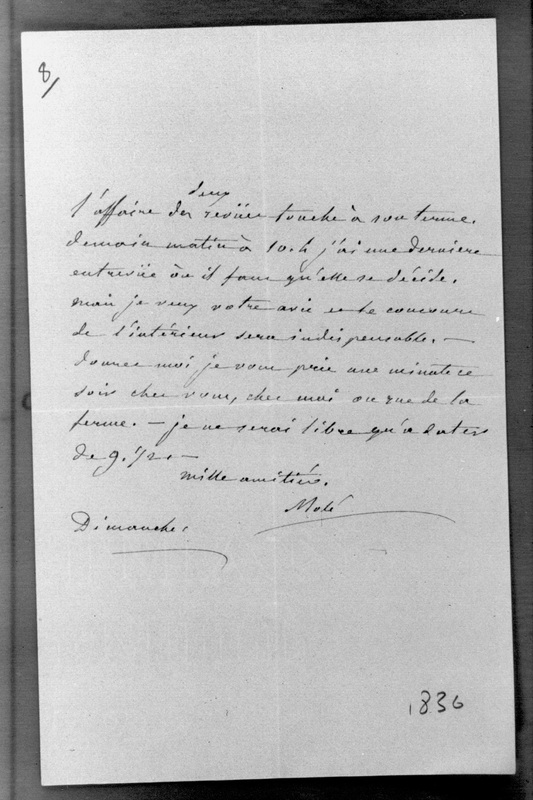 8/
deux
l'affaire des revües touche à son terme.
demain matin à 10.h j'ai une dernière
entrevüe où il faut qu'elle se décide.
mais je veux votre avis et le concours
de l'intérieur sera indispensable. —
donnez moi je vous prie une minute ce
soir chez vous, chez moi ou rue de la
ferme. — je ne serai libre qu'à dater
de 9. 1/2 —
mille amitiés.
Molé
Dimanche.
1836